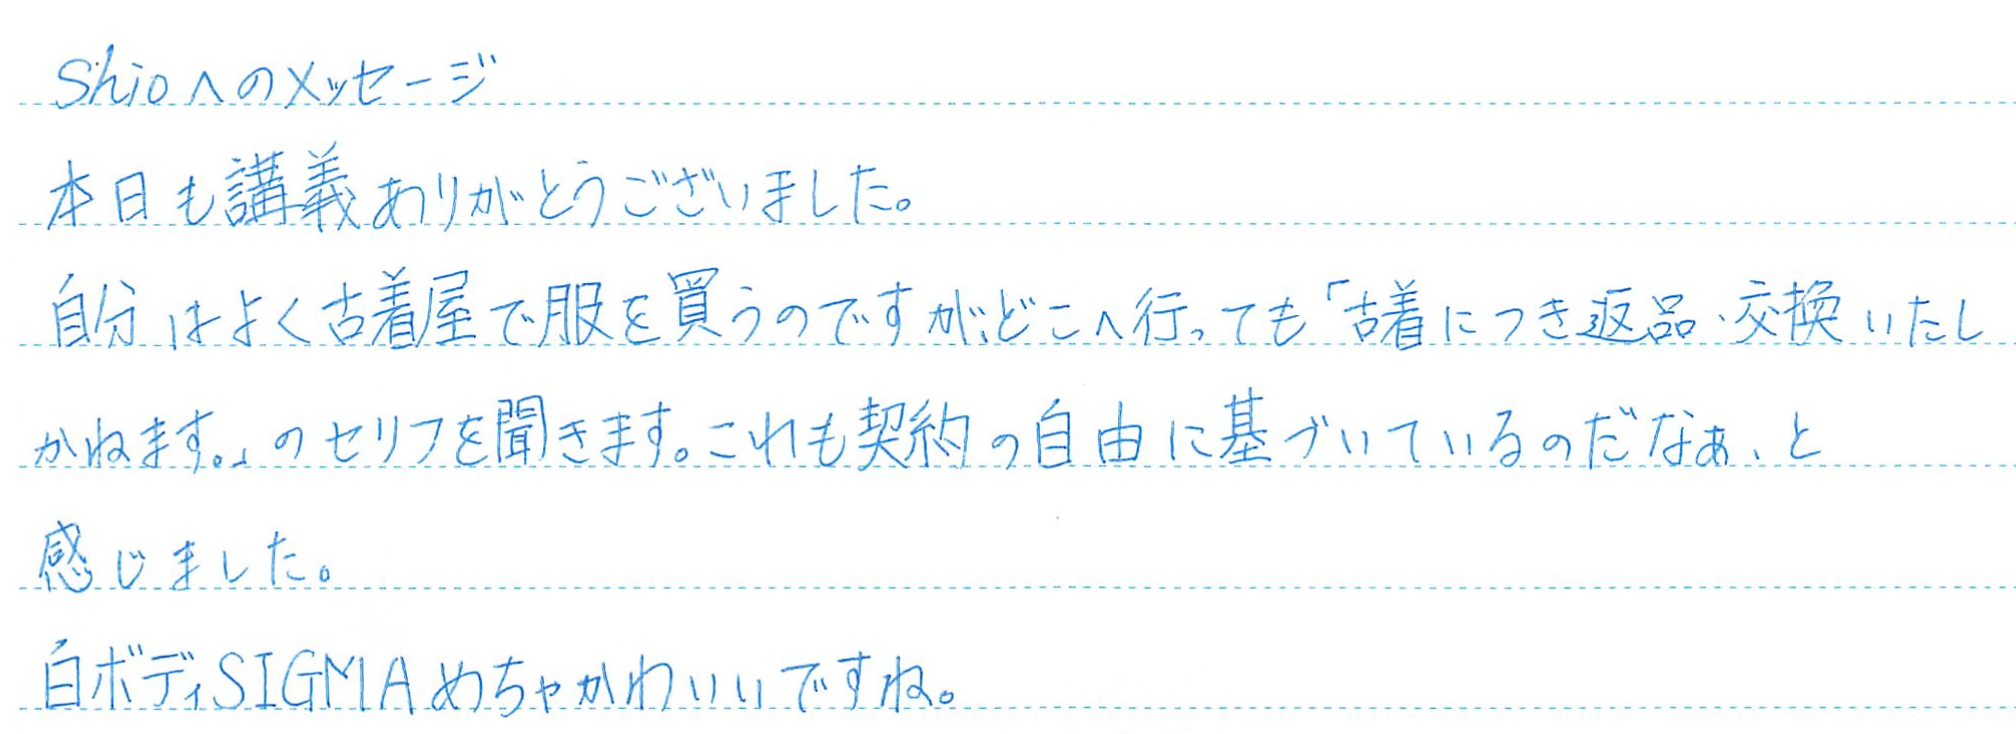 Shioへのメッセージ
本日も講義ありがとうございました。
自分はよく古着屋で服を買うのですが、どこへ行っても「古着につき返品・交換いたし
かねます。」のセリフを聞きます。これも契約の自由に基づいているのだなぁ、と
感じました。
白ボディSIGMAめちゃかわいいですね。